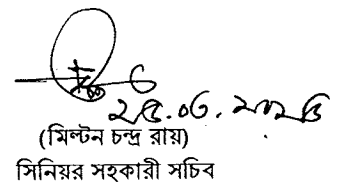 ২৫.০৩.২০২৫
(মিল্টন চন্দ্র রায়)
সিনিয়র সহকারী সচিব